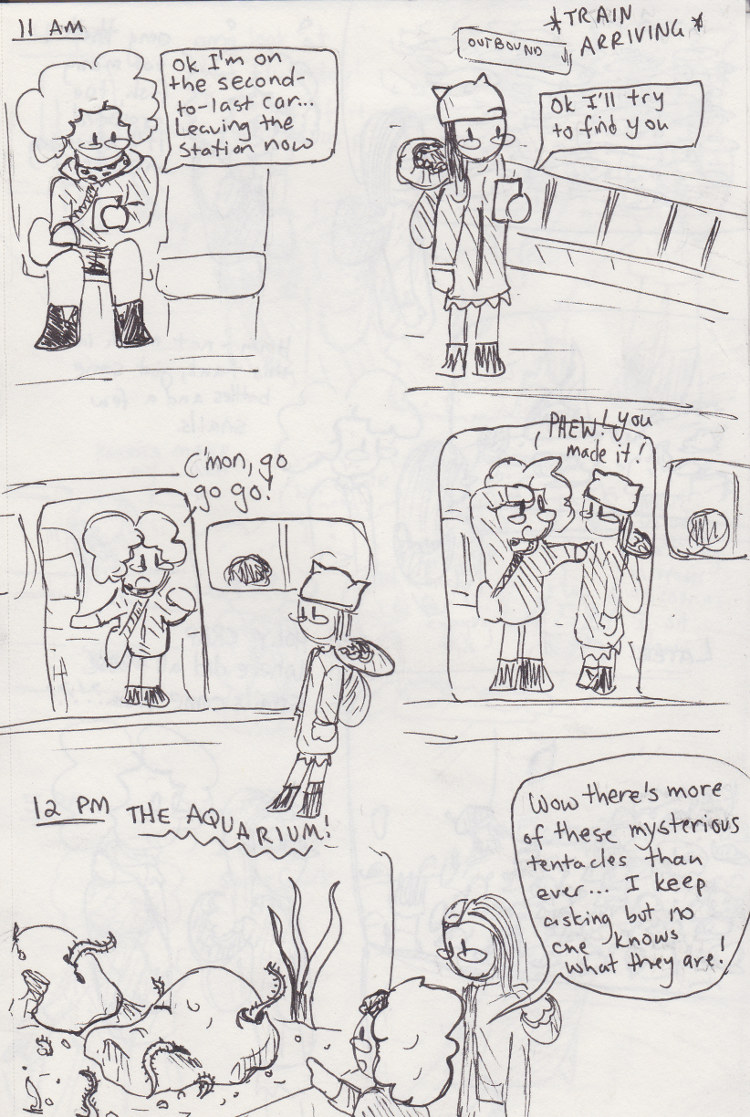 11 AM
Ok I'm on
the second-
to-last car...
Leaving the
station now
*TRAIN
ARRIVING*
OUTBOUND
Ok I'll try
to find you
C'mon, go
go go!
PHEW! you
made it!
12 PM THE AQUARIUM!
Wow there's more
of these mysterious
tentacles than
ever... I keep
asking but no
one knows
what they are!